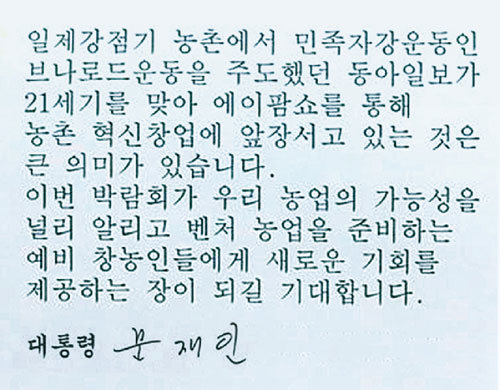 일제강점기 농촌에서 민족자강운동인
브나로드운동을 주도했던 동아일보가
21세기를 맞아 에이팜쇼를 통해
농촌 혁신창업에 앞장서고 있는 것은
큰 의미가 있습니다.
이번 박람회가 우리 농업의 가능성을
널리 알리고 벤처 농업을 준비하는
예비 창농인들에게 새로운 기회를
제공하는 장이 되길 기대합니다.
대통령 문재인